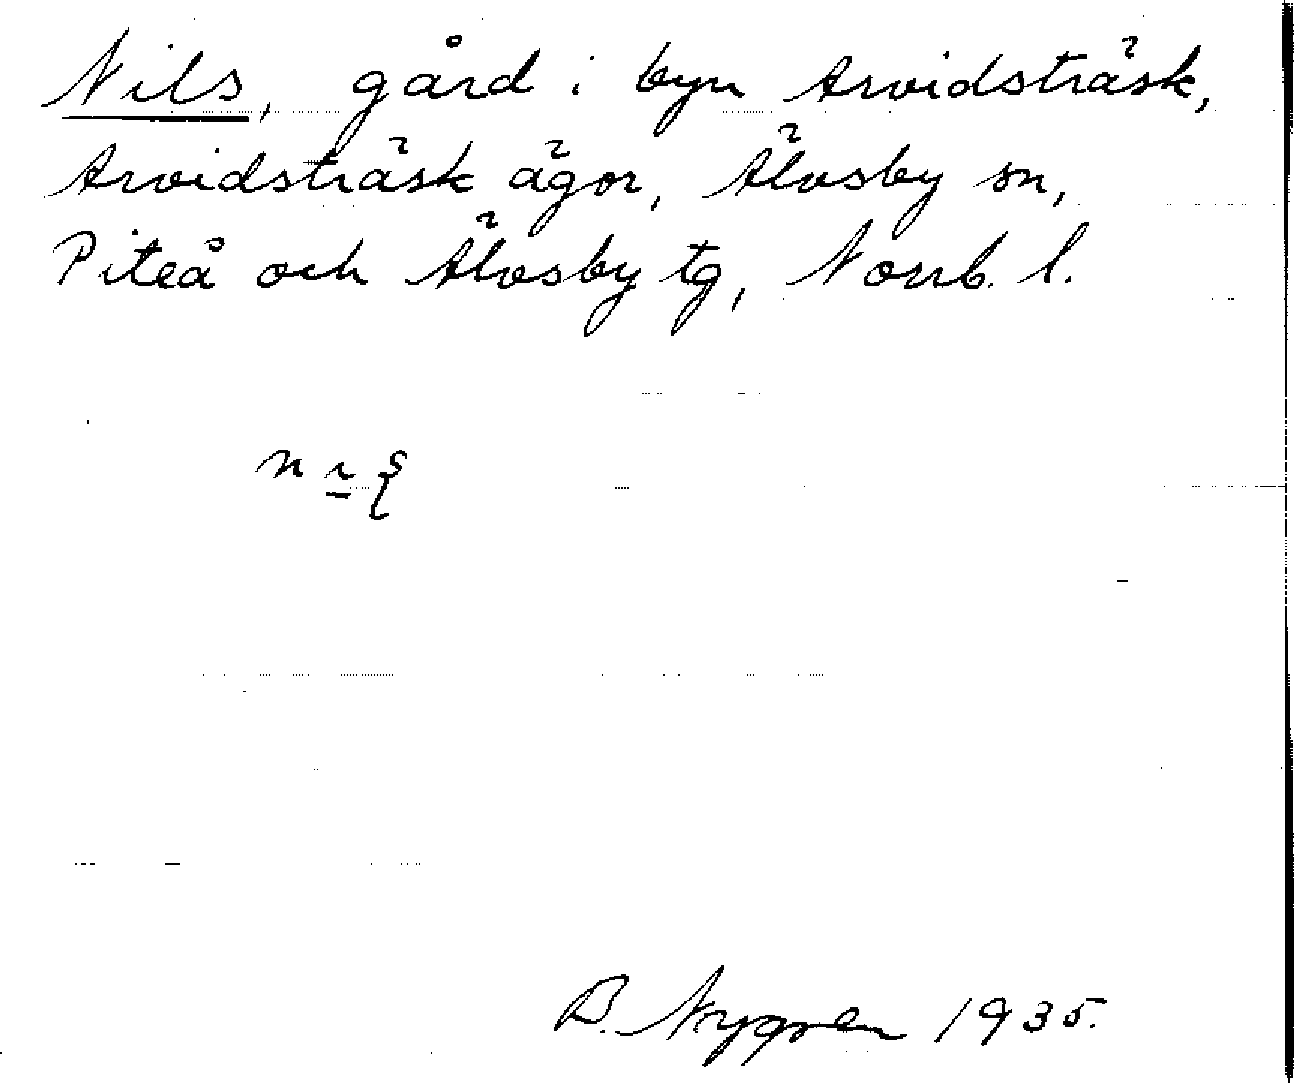 Nils, gård i byn Arvidsträsk,
Arvidsträsk ägor, Älvsby sn,
Piteå och Älvsby tg, Norrb. l.
B. Nygren 1935.